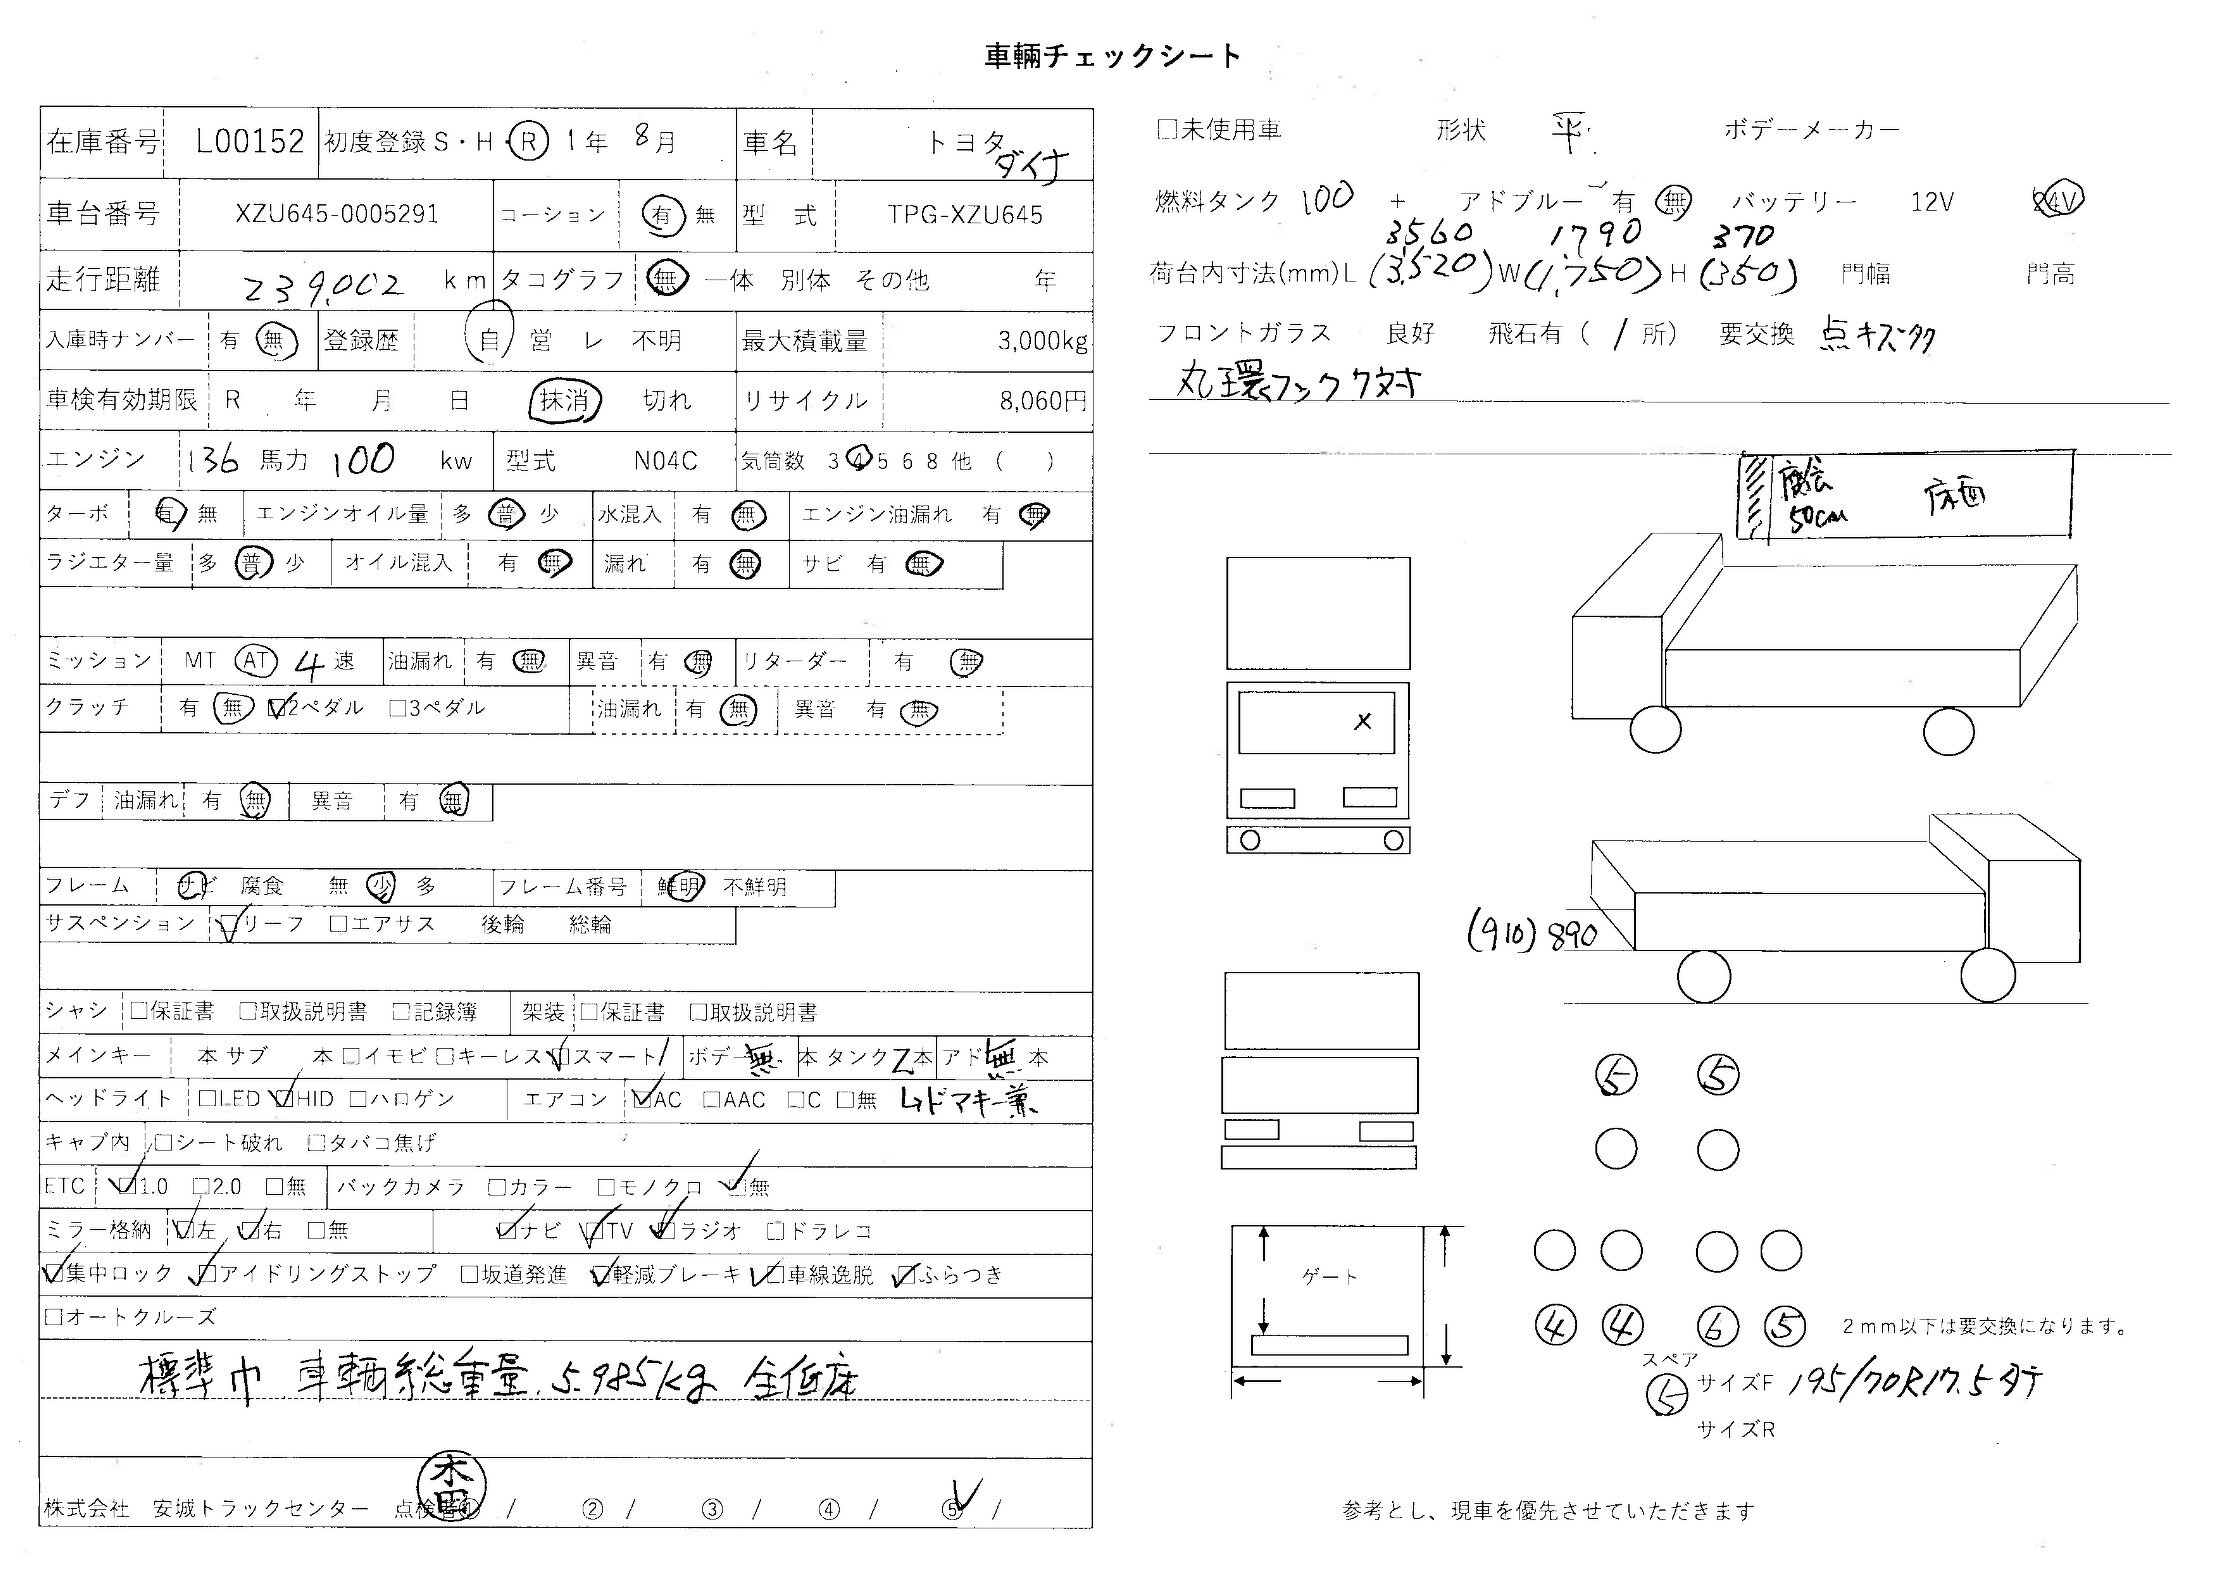 車輛チェックシート
在庫番号 L00152 初度登録 S・H・R 1年 8月 車名 トヨタ
ダイナ
車台番号 XZU645-0005291 コーション 有 無 型 式 TPG-XZU645
走行距離 239,002 km タコグラフ 無 一体 別体 その他 年
入庫時ナンバー 有 無 登録歴 自 営 レ 不明 最大積載量 3,000kg
車検有効期限 R 年 月 日 抹消 切れ リサイクル 8,060円
エンジン 136 馬力 100 kw 型式 N04C 気筒数 3 4 5 6 8 他 ( )
ターボ 有 無 エンジンオイル量 多 普 少 水混入 有 無 エンジン油漏れ 有 無
ラジエター量 多 普 少 オイル混入 有 無 漏れ 有 無 サビ 有 無
ミッション MT AT 4 速 油漏れ 有 無 異音 有 無 リターダー 有 無
クラッチ 有 無 ☑2ペダル □3ペダル 油漏れ 有 無 異音 有 無
デフ 油漏れ 有 無 異音 有 無
フレーム サビ 腐食 無 少 多 フレーム番号 鮮明 不鮮明
サスペンション ☑リーフ □エアサス 後輪 総輪
シャシ □保証書 □取扱説明書 □記録簿 架装 □保証書 □取扱説明書
メインキー 本 サブ 本 □イモビ □キーレス ☑スマート 1 ボデー 無 本 タンク 2本 アド 無 本
ヘッドライト □LED ☑HID □ハロゲン エアコン ☑AC □AAC □C □無
キャブ内 □シート破れ □タバコ焦げ
ETC ☑1.0 □2.0 □無 バックカメラ □カラー □モノクロ ☑無
ミラー格納 ☑左 ☑右 □無 ☑ナビ ☑TV ☑ラジオ □ドラレコ
☑集中ロック ☑アイドリングストップ □坂道発進 ☑軽減ブレーキ ☑車線逸脱 ☑ふらつき
□オートクルーズ
標準巾 車輌総重量 5.985kg 全低床
株式会社 安城トラックセンター 点検者① / ② / ③ / ④ / ⑤ /
□未使用車 形状 平 ボデーメーカー
燃料タンク 100 + アドブルー 有 無 バッテリー 12V 24V
3560 1790 370
荷台内寸法(mm) L (3,520) W (1,750) H (350) 門幅 門高
フロントガラス 良好 飛石有 ( 1 所) 要交換 点キズ
丸環フック7対
50cm
床面
(910) 890
5 5
ゲート
4 4 6 5 2mm以下は要交換になります。
スペア
5 サイズF 195/70R17.5
サイズR
参考とし、現車を優先させていただきます